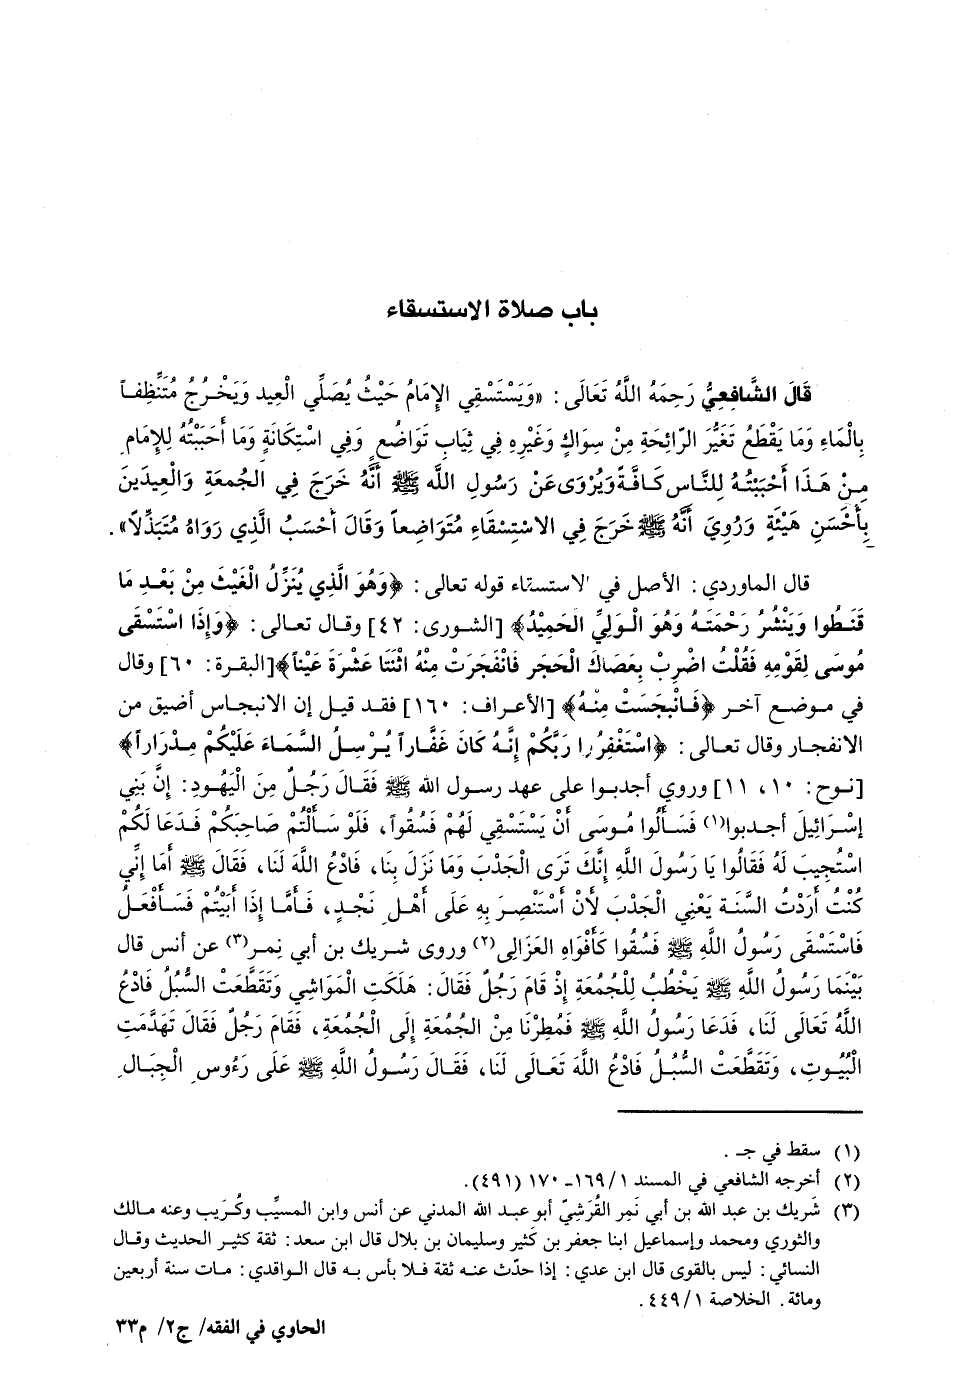 باب صلاة الاستسقاء
قَالَ الشَّافِعِيُّ رَحِمَهُ اللَّهُ تَعَالَى: «وَيَسْتَسْقِي الإِمَامُ حَيْثُ يُصَلِّي الْعِيد وَيَخْرُجُ مُتَنَظِّفاً
بِالْمَاءِ وَمَا يَقْطَعُ تَغَيُّرَ الرَّائِحَةِ مِنْ سِوَاكٍ وَغَيْرِهِ فِي ثِيَابِ تَوَاضُعٍ وَفِي اسْتِكَانَةٍ وَمَا أَحْبَبْتُهُ لِلإِمَامِ
مِنْ هَذَا أَحْبَبْتُهُ لِلنَّاسِ كَافَّةً وَيُرْوَى عَنْ رَسُولِ اللَّهِ ﷺ أَنَّهُ خَرَجَ فِي الْجُمعَةِ وَالْعِيدَيْنِ
بِأَحْسَنِ هَيْئَةٍ وَرُوِيَ أَنَّهُ ﷺ خَرَجَ فِي الاسْتِسْقَاءِ مُتَوَاضِعاً وَقَالَ أَحْسَبُ الَّذِي رَوَاهُ مُتَبَذِّلاً».
قال الماوردي: الأصل في الاستسقاء قوله تعالى: ﴿وَهُوَ الَّذِي يُنَزِّلُ الْغَيْثَ مِنْ بَعْدِ مَا
قَنَطُوا وَيَنْشُرُ رَحْمَتَهُ وَهُوَ الْوَلِيُّ الحَمِيْدُ﴾ [الشورى: ٤٢] وقال تعالى: ﴿وَإِذَا اسْتَسْقَى
مُوسَى لِقَوْمِهِ فَقُلْتُ اضْرِبْ بِعَصَاكَ الْحَجَرِ فَانْفَجَرَتْ مِنْهُ اثْنَتَا عَشْرَةَ عَيْناً﴾[البقرة: ٦٠] وقال
في موضع آخر ﴿فَانْبَجَسَتْ مِنْهُ﴾ [الأعراف: ١٦٠] فقد قيل إن الانبجاس أضيق من
الانفجار وقال تعالى: ﴿اسْتَغْفِرُوا رَبَّكُمْ إِنَّهُ كَانَ غَفَّاراً يُرْسِلُ السَّمَاءَ عَلَيْكُمْ مِدْرَاراً﴾
[نوح: ١٠، ١١] وروي أجدبوا على عهد رسول الله ﷺ فَقَالَ رَجُلٌ مِنَ الْيَهُودِ: إِنَّ بَنِي
إِسْرَائِيلَ أجدبوا(١) فَسَأَلُوا مُوسَى أَنْ يَسْتَسْقِي لَهُمْ فَسُقُواً، فَلَوْ سَأَلْتُمْ صَاحِبَكُمْ فَدَعَا لَكُمْ
اسْتُجِيبَ لَهُ فَقَالُوا يَا رَسُولَ اللَّهِ إِنَّكَ تَرَى الْجَدْبَ وَمَا نَزَلَ بِنَا، فَادْعُ اللَّهَ لَنَا، فَقَالَ ﷺ أَمَا إِنِّي
كُنْتُ أَرَدْتُ السَّنَةَ يَعْنِي الْجَدْبَ لأَنْ أَسْتَنْصِرَ بِهِ عَلَى أَهْلِ نَجْدٍ، فَأَمَّا إِذَا أَبَيْتُمْ فَسَأَفْعَلُ
فَاسْتَسْقَى رَسُولُ اللَّهِ ﷺ فَسُقُوا كَأَفْوَاهِ العَزَالِي(٢) وروى شريك بن أبي نمر(٣) عن أنس قال
بَيْنَمَا رَسُولُ اللَّهِ ﷺ يَخْطُبُ لِلْجُمُعَةِ إِذْ قَامَ رَجُلٌ فَقَالَ: هَلَكَتِ الْمَوَاشِي وَتَقَطَّعَتْ السُّبُلُ فَادْعُ
اللَّهُ تَعَالَى لَنَا، فَدَعَا رَسُولُ اللَّهِ ﷺ فَمُطِرْنَا مِنْ الْجُمُعَةِ إِلَى الْجُمُعَةِ، فَقَامَ رَجُلٌ فَقَالَ تَهَدَّمَتِ
الْبُيُوتِ، وَتَقَطَّعَتْ السُّبُلُ فَادْعُ اللَّهَ تَعَالَى لَنَا، فَقَالَ رَسُولُ اللَّهِ ﷺ عَلَى رَءُوسِ الْجِبَالِ
(١) سقط في جـ .
(٢) أخرجه الشافعي في المسند ١/ ١٦٩ـ ١٧٠ (٤٩١).
(٣) شَريك بن عبد الله بن أبي نَمِر القُرَشِيّ أبو عبد الله المدني عن أنس وابن المسيِّب وكُرَيب وعنه مالك
والثوري ومحمد وإسماعيل ابنا جعفر بن كَثير وسليمان بن بلال قال ابن سعد: ثقة كثير الحديث وقال
النسائي: ليس بالقوى قال ابن عدي: إذا حدّث عنه ثقة فلا بأس به قال الواقدي: مات سنة أربعين
ومائة. الخلاصة ١/ ٤٤٩.
الحاوي في الفقه/ ج٢/ م٣٣